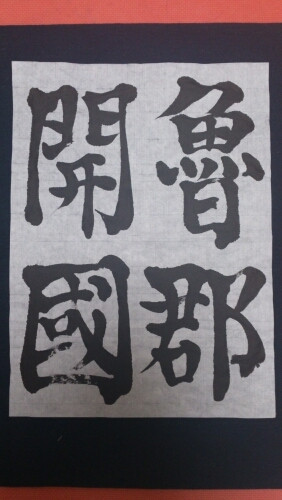 魯郡
開國